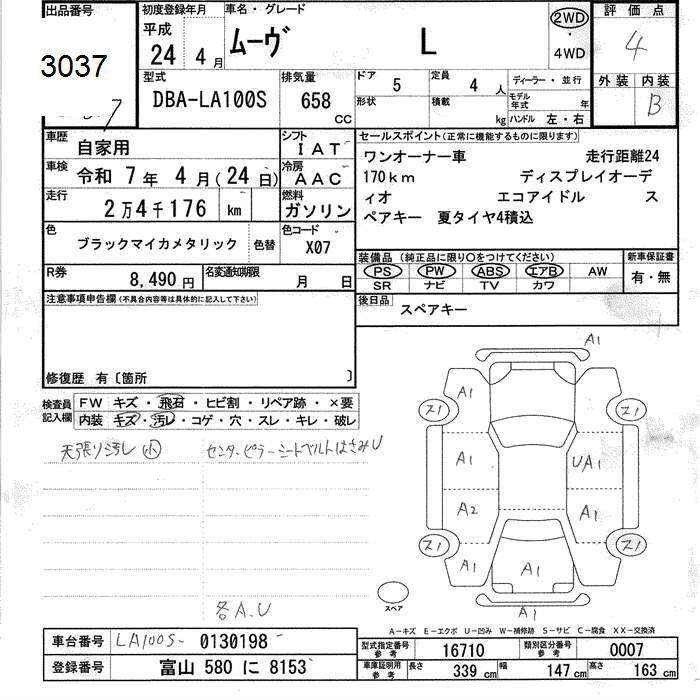 出品番号
3037
7
初度登録年月
平成
24年4月
車名・グレード
ムーヴ L
2WD
・
4WD
評価点
4
外装 内装
B
型式
DBA-LA100S
排気量
658 CC
ドア 5
定員 4人
ディーラー・並行
形状
積載 kg
モデル年式 年
ハンドル 左・右
車歴 自家用
シフト IAT
車検 令和7年4月(24日)
冷房 AAC
走行 2万4千176 km
燃料 ガソリン
色 ブラックマイカメタリック 色替
色コード X07
R券 8,490円
名変通知期限 月 日
セールスポイント(正常に機能するものに限ります)
ワンオーナー車 走行距離24
170km ディスプレイオーデ
ィオ エコアイドル ス
ペアキー 夏タイヤ4積込
装備品(純正品に限り〇をつけてください)
新車保証書
PS PW ABS エアB AW
SR ナビ TV カワ
有・無
後日品 スペアキー
注意事項申告欄(不具合内容等は具体的に記入して下さい)
修復歴 有〔箇所 〕
検査員記入欄
FW キズ・飛石・ヒビ割・リペア跡・×要
内装 キズ・汚レ・コゲ・穴・スレ・キレ・破レ
天張り汚レ 小
センターピラーシートベルトはさみU
各A.U
A1
A1
ス1 ス1
A1 UA1
A2 A1
ス1 ス1
A1 A1 A1
スペア
A1
A-キズ E-エクボ U-凹み W-補修跡 S-サビ C-腐食 XX-交換済
車台番号 LA100S- 0130198
登録番号 富山 580 に 8153
型式指定番号 参考 16710
類別区分番号 参考 0007
車庫証明用 参考 長さ 339cm 幅 147cm 高さ 163cm